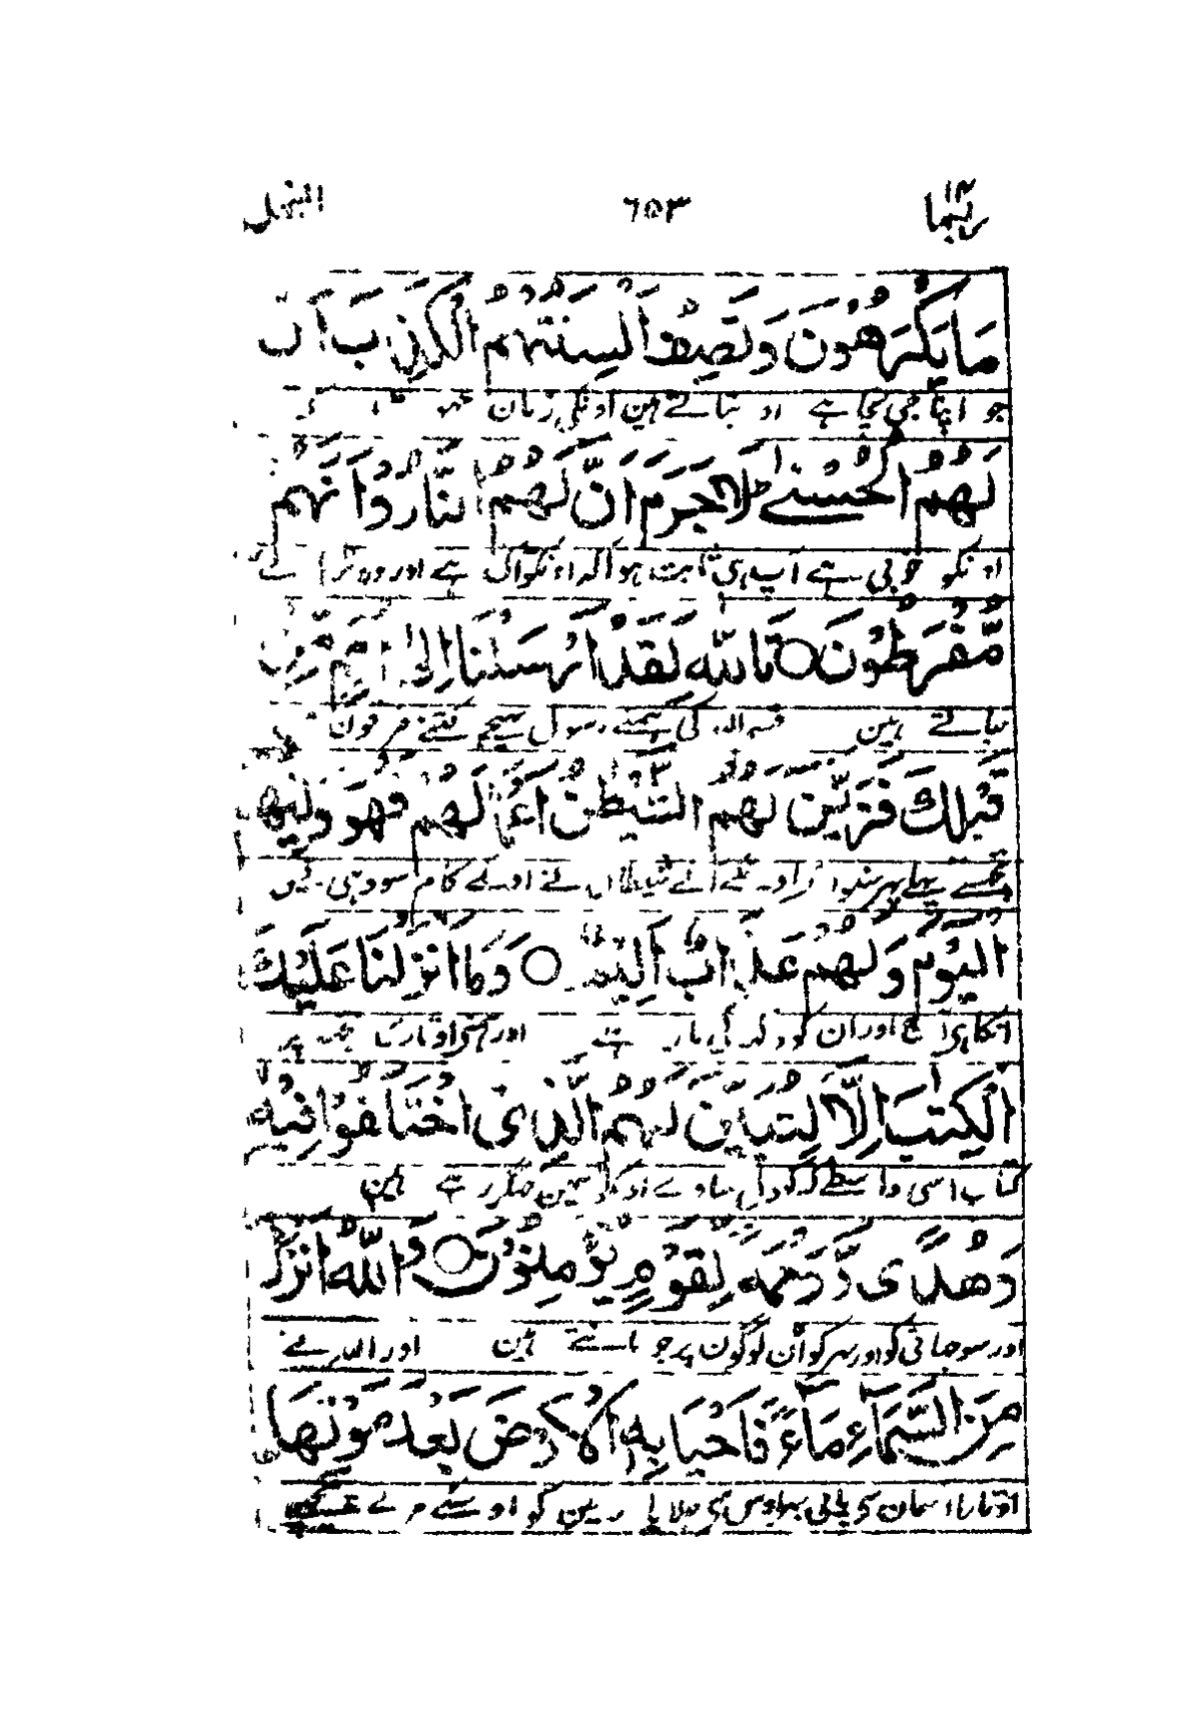 ربما ١٤ ٦٥٣ النحل
مَا يَكْرَهُوْنَ وَتَصِفُ اَلْسِنَتُهُمُ الْكَذِبَ اَنَّ
جو اپنا جی نچاہے اور بناتے ہین اونکی زبان
لَهُمُ الْحُسْنٰى ط لَا جَرَمَ اَنَّ لَهُمُ النَّارَ وَاَنَّهُمْ
اونکو خوبی ہے آپ ہی ثابت ہوا کہ اونکو آگ ہے اور وہ
مُّفْرَطُوْنَ ○ تَاللهِ لَقَدْ اَرْسَلْنَا اِلٰى اُمَمٍ مِّنْ
ہین قسم اللہ کی ہمنے رسول بھیجے کتنے فرقون
قَبْلِكَ فَزَيَّنَ لَهُمُ الشَّيْطٰنُ اَعْمَالَهُمْ فَهُوَ وَلِيُّهُمُ
تجھسے پہلے پھر شیطان نے اونکے کام سو وہی
الْيَوْمَ وَلَهُمْ عَذَابٌ اَلِيْمٌ ○ وَمَا اَنْزَلْنَا عَلَيْكَ
آج اور ان کو دکھ کی مار ہے اور ہمنی اوتاری تجھہ پر
الْكِتٰبَ اِلَّا لِتُبَيِّنَ لَهُمُ الَّذِى اخْتَلَفُوْا فِيْهِ
کتاب اسی واسطے کہ کھول سناوے جھگڑ رہے ہین
وَهُدًى وَّرَحْمَةً لِّقَوْمٍ يُّؤْمِنُوْنَ ○ وَاللهُ اَنْزَلَ
اور سوجھانی کو اور مہر کو اُن لوگون پر جو مانتے ہین اور اللہ نے
مِنَ السَّمَآءِ مَآءً فَاَحْيَا بِهِ الْاَرْضَ بَعْدَ مَوْتِهَا
اوتارا آسمان سے پانی پھر اوس سی جلایا زمین کو اوسکے مرے